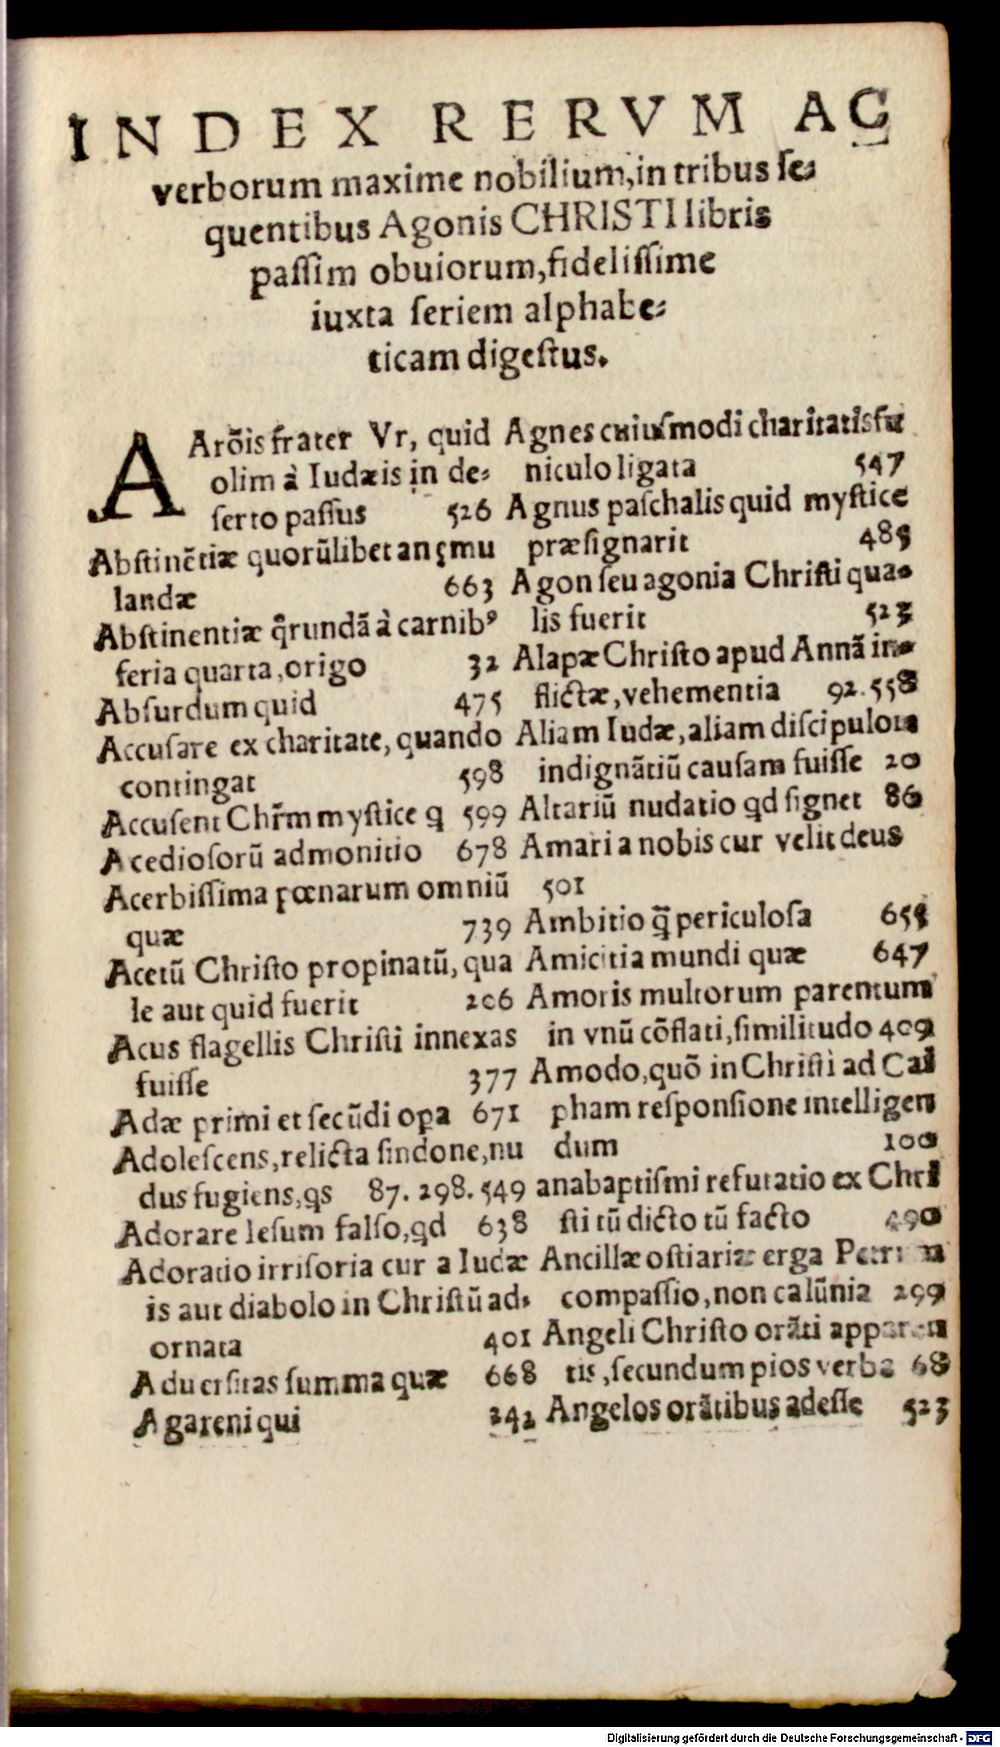 INDEX RERVM AC
verborum maxime nobilium, in tribus ſe⸗
quentibus Agonis CHRISTI libris
paſſim obuiorum, fideliſſime
iuxta ſeriem alphabe⸗
ticam digeſtus.
AArõis frater Vr, quid
olim à Iudæis in de⸗
ſerto paſſus 526
Abſtinẽtiæ quorũlibet an ꝓmu
landæ 663
Abſtinentiæ q̃rundã à carnibꝰ
feria quarta, origo 32
Abſurdum quid 475
Accuſare ex charitate, quando
contingat 598
Accuſent Chr̃m myſtice q 599
Acedioſorũ admonitio 678
Acerbiſſima pœnarum omniũ
quæ 739
Acetũ Chriſto propinatũ, qua
le aut quid fuerit 206
Acus flagellis Chriſti innexas
fuiſſe 377
Adæ primi et ſecũdi opa 671
Adoleſcens, relicta ſindone, nu
dus fugiens, qs 87. 298. 549
Adorare Ieſum falſo, qd 638
Adoratio irriſoria cur a Iudæ
is aut diabolo in Chriſtũ ad⸗
ornata 401
Aduerſitas ſumma quæ 668
Agareni qui 242
Agnes cuiuſmodi charitatis fu
niculo ligata 547
Agnus paſchalis quid myſtice
præſignarit 485
Agon ſeu agonia Chriſti qua⸗
lis fuerit 523
Alapæ Chriſto apud Annã in⸗
flictæ, vehementia 92. 558
Aliam Iudæ, aliam diſcipulorum
indignãtiũ cauſam fuiſſe 20
Altariũ nudatio qd ſignet 86
Amari a nobis cur velit deus
501
Ambitio q̃ periculoſa 655
Amicitia mundi quæ 647
Amoris multorum parentum
in vnũ cõflati, ſimilitudo 409
Amodo, quõ in Chriſti ad Cai
pham reſponſione intelligen
dum 100
anabaptiſmi refutatio ex Chri
ſti tũ dicto tũ facto 490
Ancillæ oſtiariæ erga Petrum
compaſſio, non calũnia 299
Angeli Chriſto orãti apparen
tis, ſecundum pios verba 68
Angelos orãtibus adeſſe 523
Digitalisierung gefördert durch die Deutsche Forschungsgemeinschaft - DFG